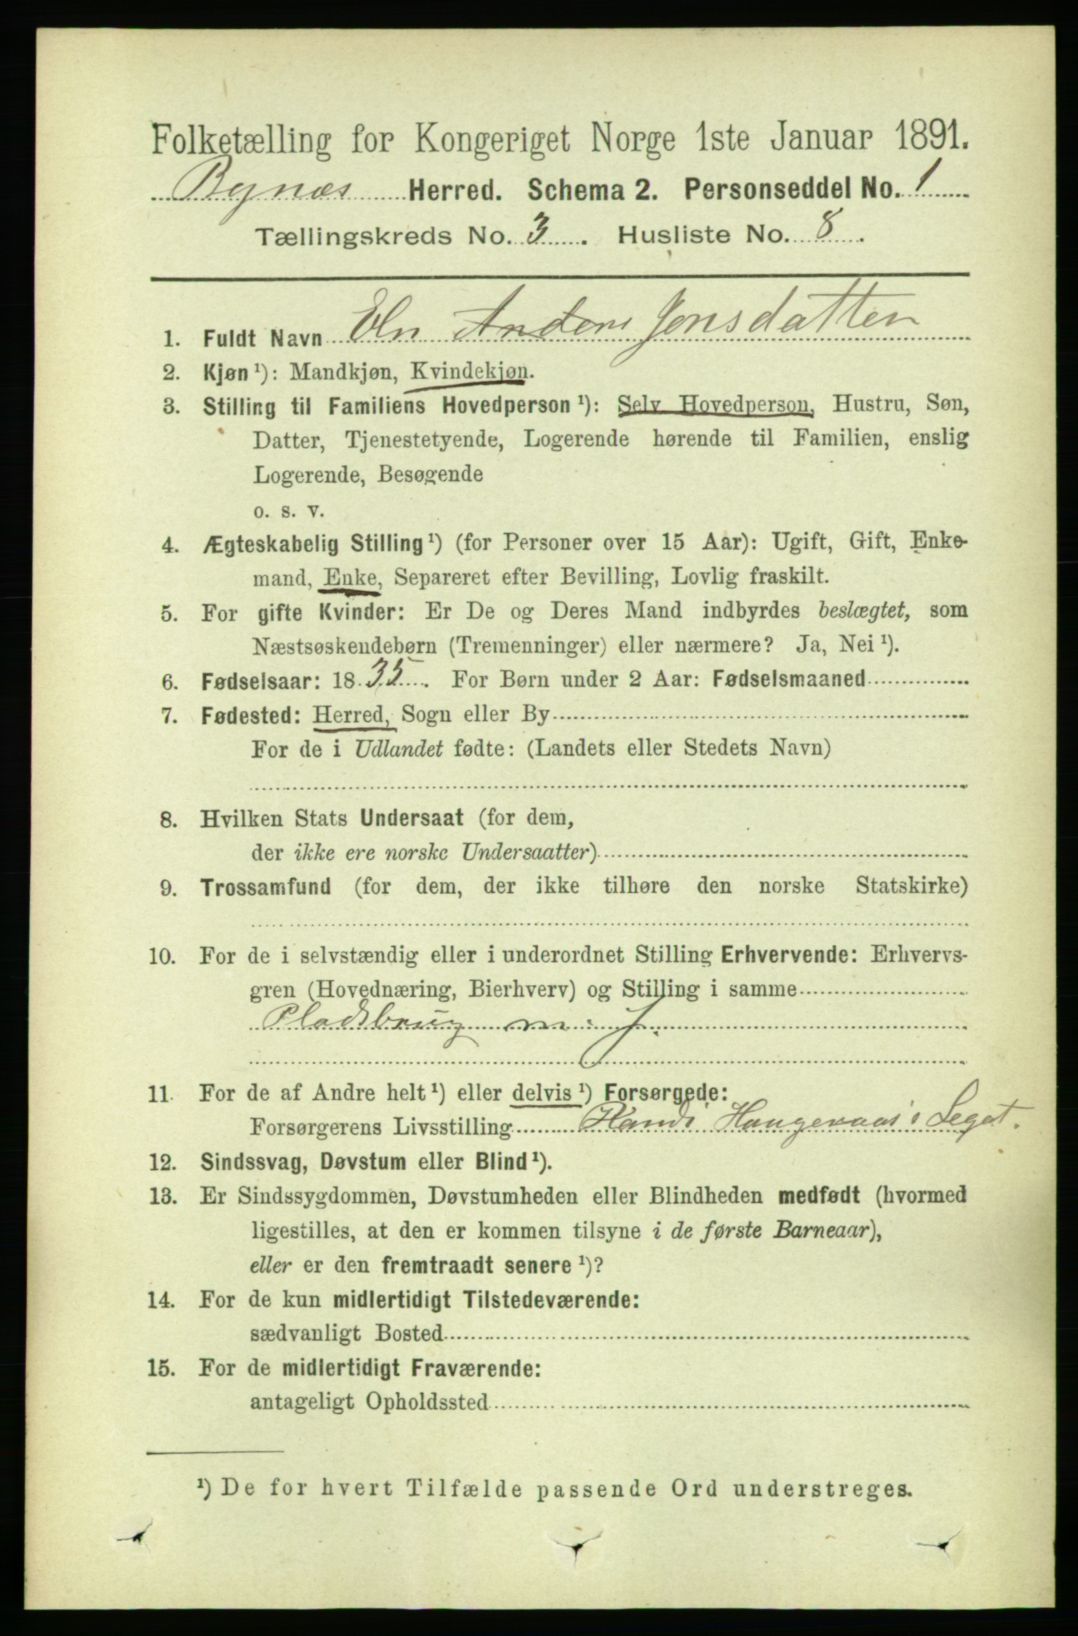 Folketælling for Kongeriget Norge 1ste Januar 1891.
Bynæs Herred. Schema 2. Personseddel No. 1
Tællingskreds No. 3. Husliste No. 8.
1. Fuldt Navn Eln Anders Jonsdatter
2. Kjøn ¹): Mandkjøn, Kvindekjøn.
3. Stilling til Familiens Hovedperson ¹): Selv Hovedperson, Hustru, Søn,
Datter, Tjenestetyende, Logerende hørende til Familien, enslig
Logerende, Besøgende
o. s. v.
4. Ægteskabelig Stilling ¹) (for Personer over 15 Aar): Ugift, Gift, Enke-
mand, Enke, Separeret efter Bevilling, Lovlig fraskilt.
5. For gifte Kvinder: Er De og Deres Mand indbyrdes beslægtet, som
Næstsøskendebørn (Tremenninger) eller nærmere? Ja, Nei ¹).
6. Fødselsaar: 1835. For Børn under 2 Aar: Fødselsmaaned
7. Fødested: Herred, Sogn eller By
For de i Udlandet fødte: (Landets eller Stedets Navn)
8. Hvilken Stats Undersaat (for dem,
der ikke ere norske Undersaatter)
9. Trossamfund (for dem, der ikke tilhøre den norske Statskirke)
10. For de i selvstændig eller i underordnet Stilling Erhvervende: Erhvervs-
gren (Hovednæring, Bierhverv) og Stilling i samme
Pladsbrug m: J.
11. For de af Andre helt ¹) eller delvis ¹) Forsørgede:
Forsørgerens Livsstilling Haugeraas's Legat.
12. Sindssvag, Døvstum eller Blind ¹).
13. Er Sindssygdommen, Døvstumheden eller Blindheden medfødt (hvormed
ligestilles, at den er kommen tilsyne i de første Barneaar),
eller er den fremtraadt senere ¹)?
14. For de kun midlertidigt Tilstedeværende:
sædvanligt Bosted
15. For de midlertidigt Fraværende:
antageligt Opholdssted
¹) De for hvert Tilfælde passende Ord understreges.